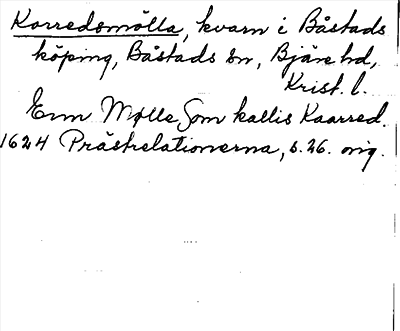 Korredsmölla, kvarn i Båstads
köping, Båstads sn, Bjäre hd,
Krist. l.
Enn Mølle, Som kallis Kaarred.
1624 Prästrelationerna, s. 26. orig.